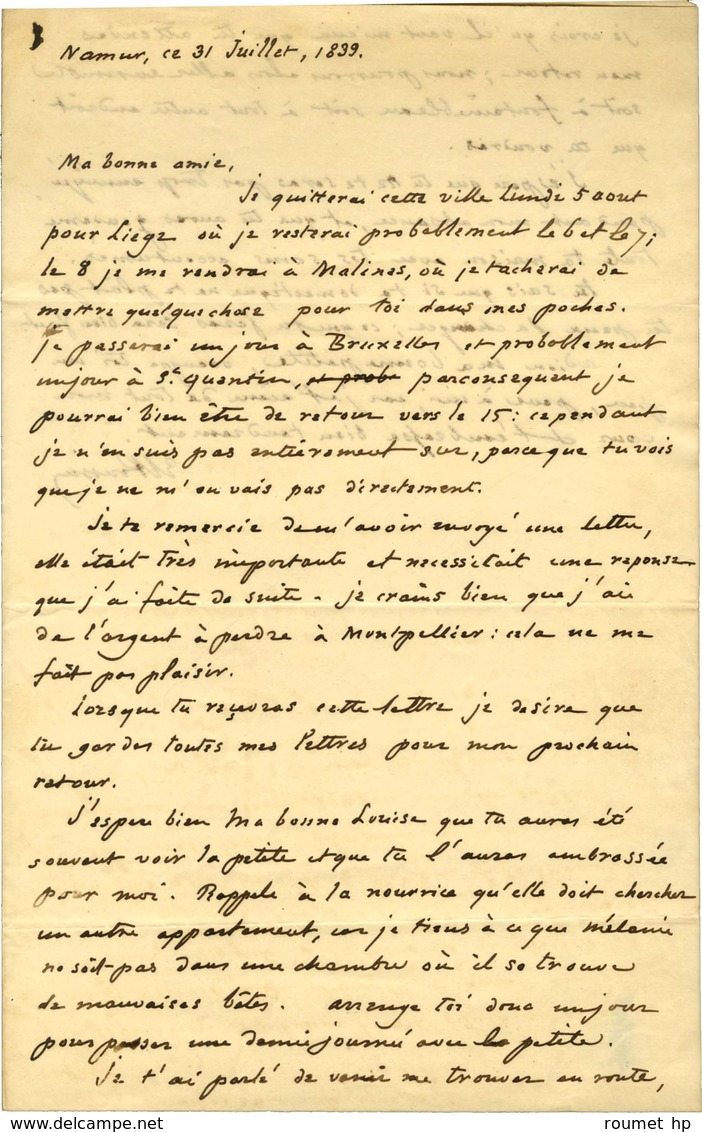 Namur, ce 31 Juillet, 1839.
Ma bonne amie,
Je quitterai cette ville lundi 5 aout
pour Liege où je resterai probablement le 6 et le 7;
le 8 je me rendrai à Malines, où je tacherai de
mettre quelque chose pour toi dans mes poches.
je passerai un jour à Bruxelles et probablement
un jour à St. Quentin, et prob parconsequent je
pourrai bien être de retour vers le 15: cependant
je n'en suis pas entièrement sur, parce que tu vois
que je ne m'en vais pas directement.
Je te remercie de m'avoir envoyé une lettre,
elle était très importante et necessitait une reponse
que j'ai faite de suite - je crains bien que j'ai
de l'argent à perdre à Montpellier: cela ne me
fait pas plaisir.
Lorsque tu reçevras cette lettre je desire que
tu gardes toutes mes lettres pour mon prochain
retour.
J'espere bien Ma bonne Louise que tu auras été
souvent voir la petite et que tu l'auras embrassée
pour moi. Rappele à la nourrice qu'elle doit chercher
un autre appartement, car je tiens à ce que Mélanie
ne soit pas dans une chambre où il se trouve
de mauvaises bêtes. arrange toi donc un jour
pour passer une demi journé avec la petite.
Je t'ai parlé de venir me trouver en route,
roumet hp